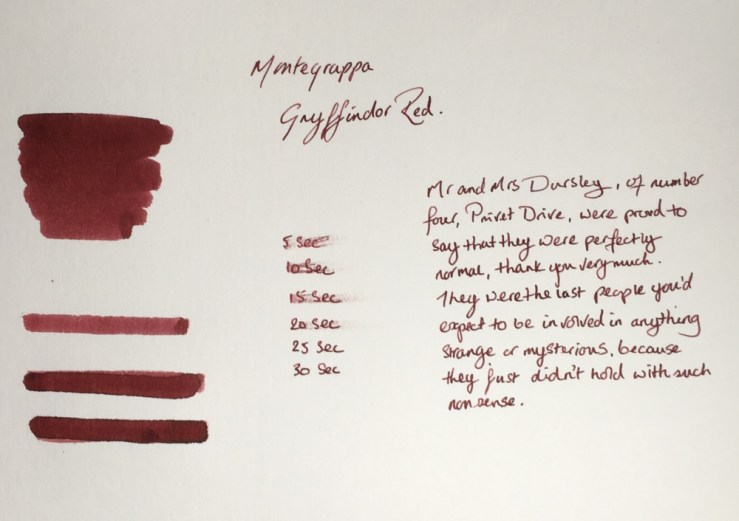 Montegrappa
Gryffindor Red.
5 Sec
10 Sec
15 Sec
20 Sec
25 Sec
30 Sec
Mr and Mrs Dursley, of number
four, Privet Drive, were proud to
say that they were perfectly
normal, thank you very much.
They were the last people you'd
expect to be involved in anything
strange or mysterious, because
they just didn't hold with such
nonsense.